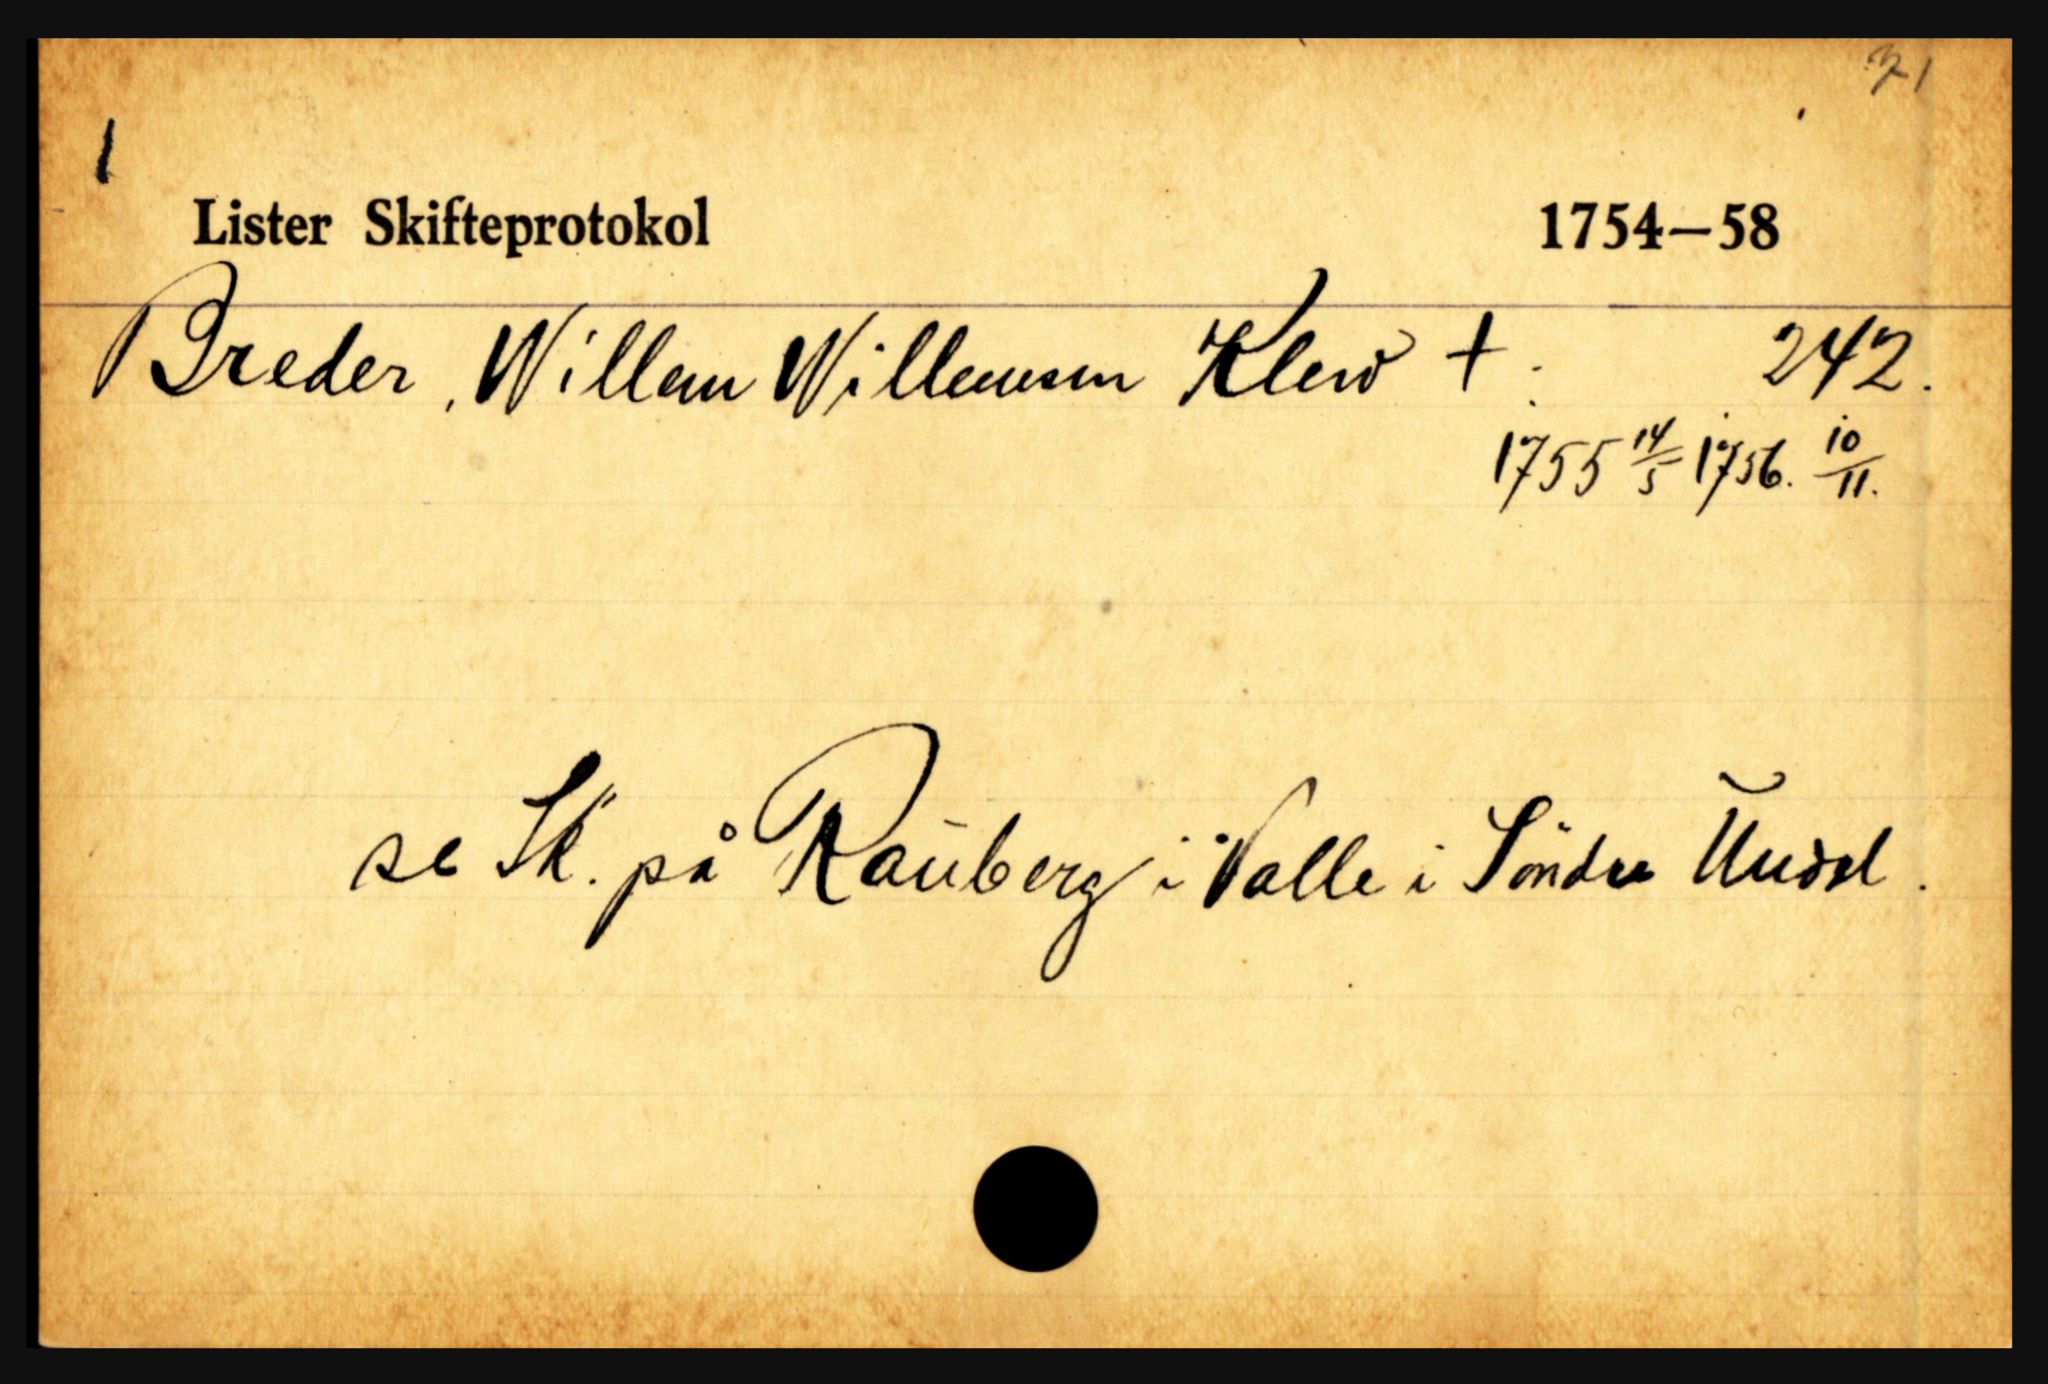 71
1
Lister Skifteprotokol 1754—58
Breder, Willem Willemsen Klew + . 242.
1755 14/5 1756. 10/11.
se Sk. på Rauberg i Valle i Söndre Undal.